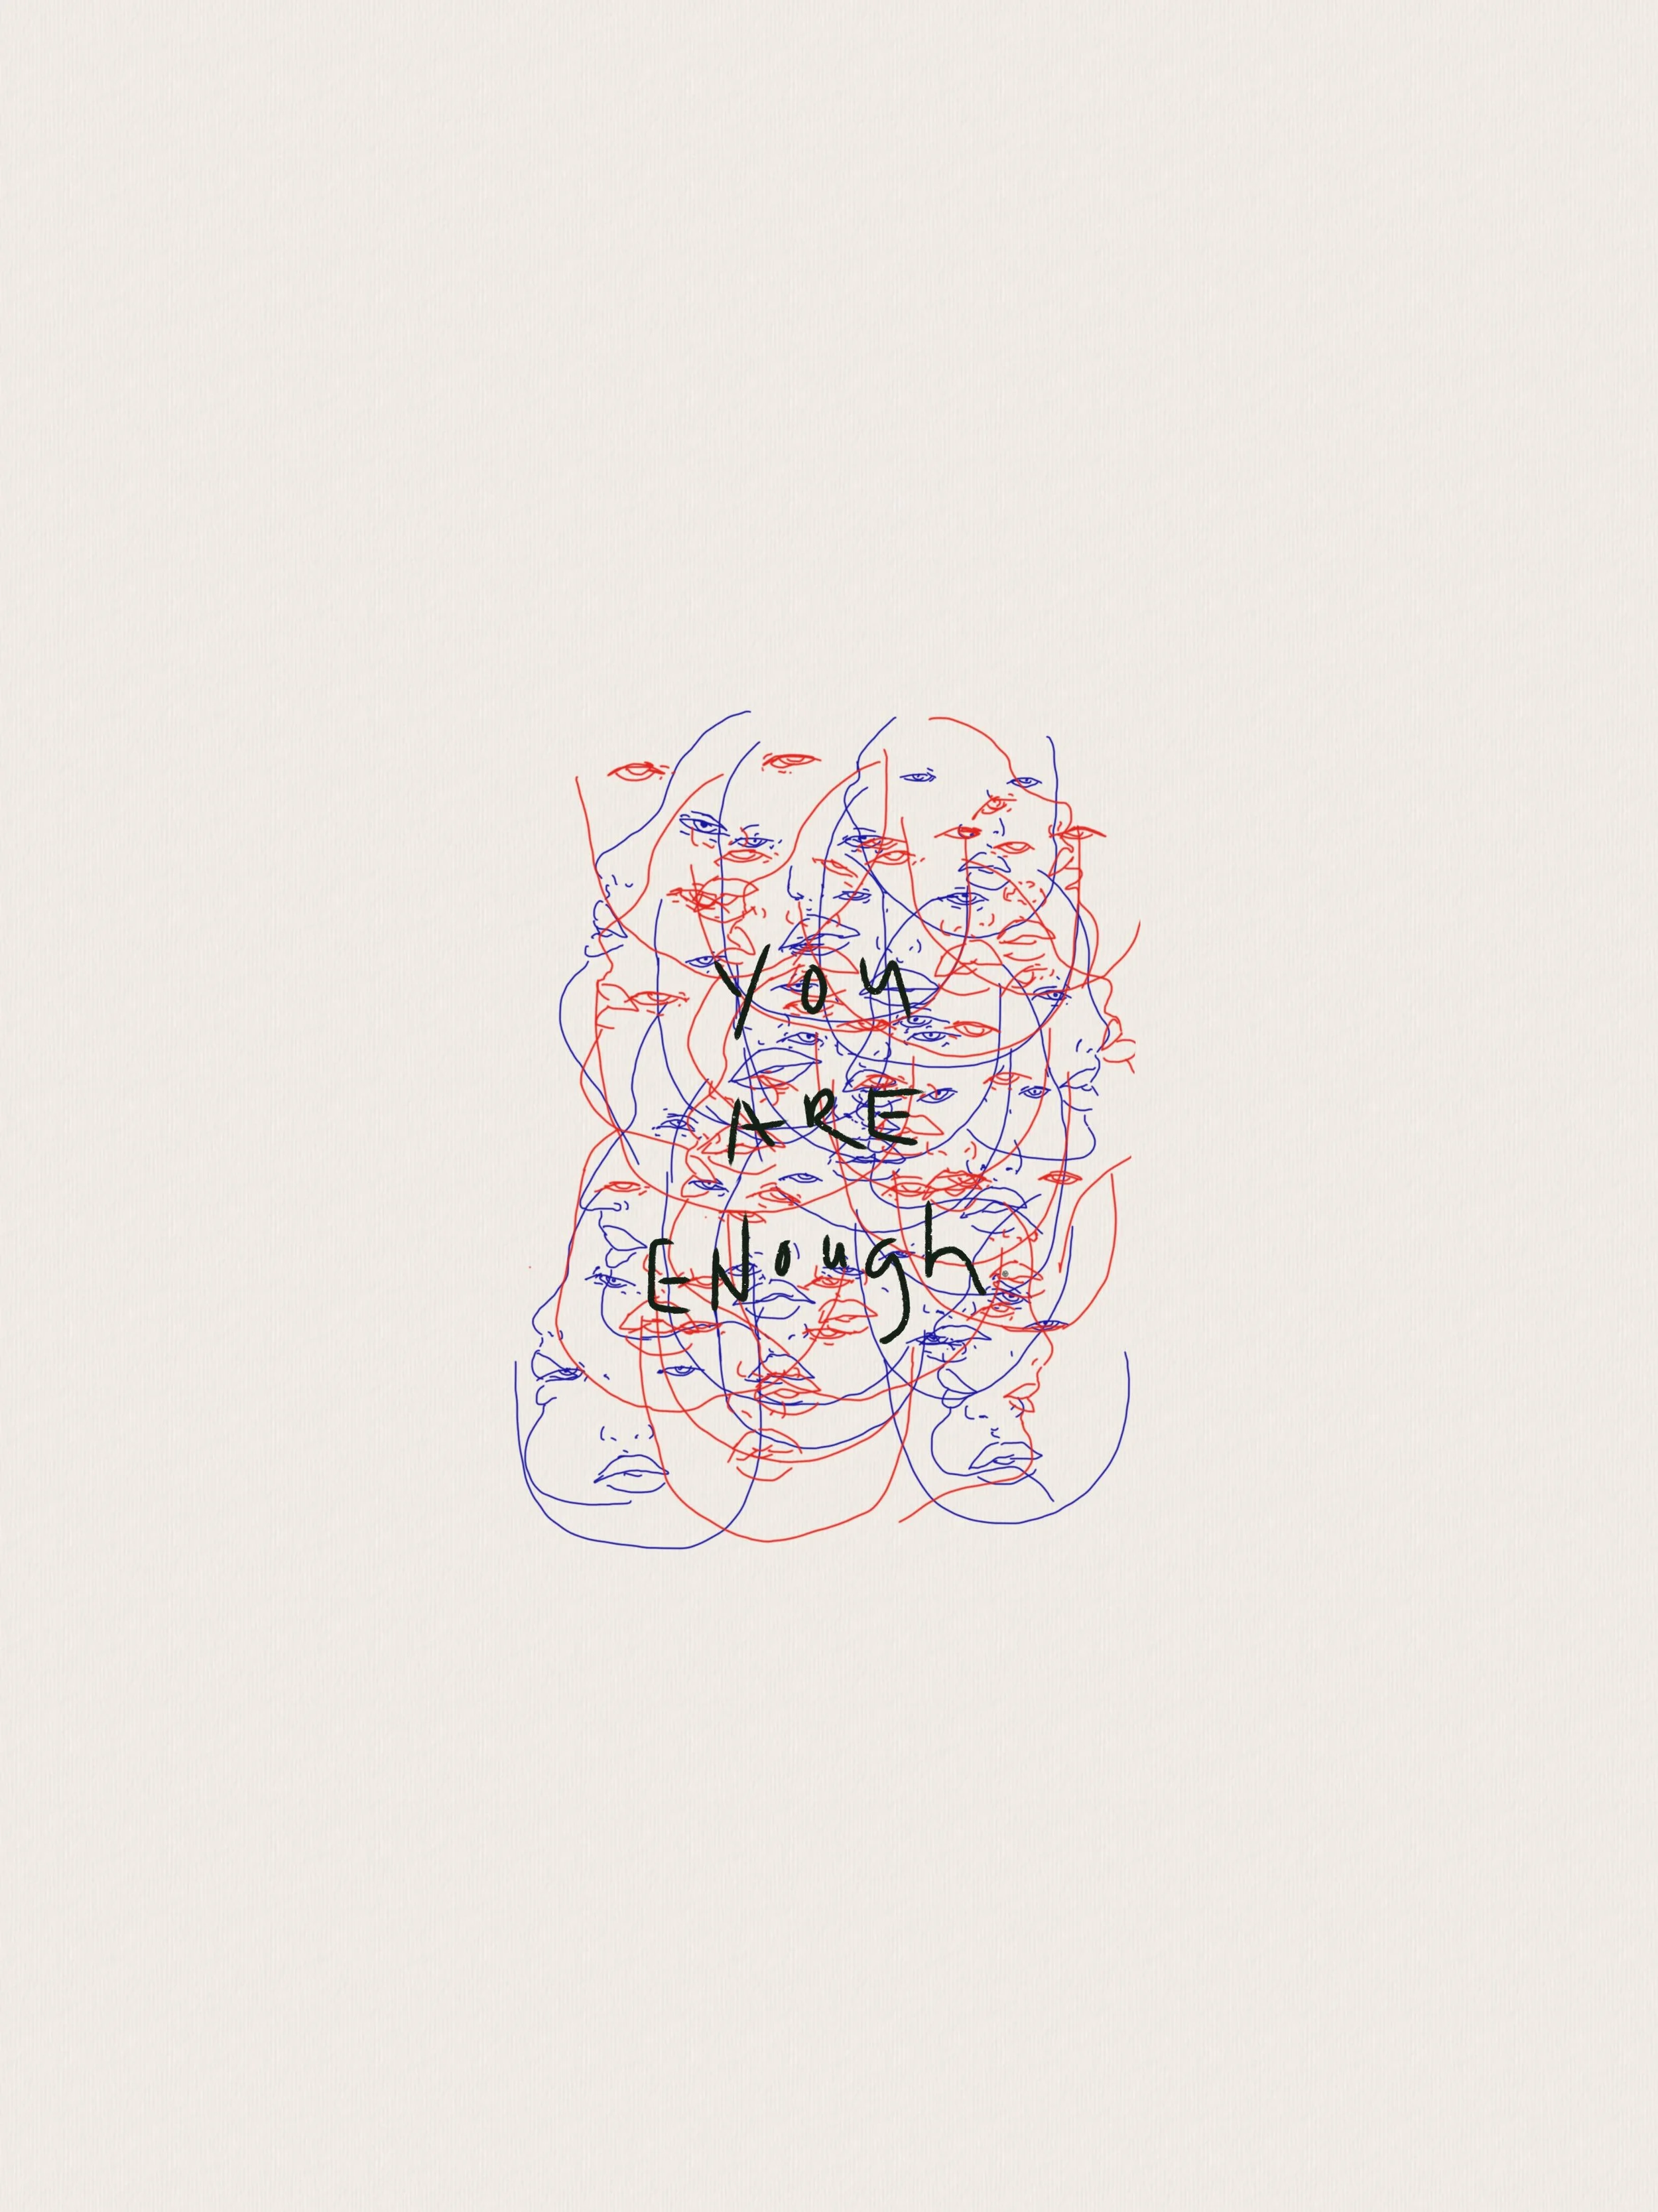 You
ARE
ENough